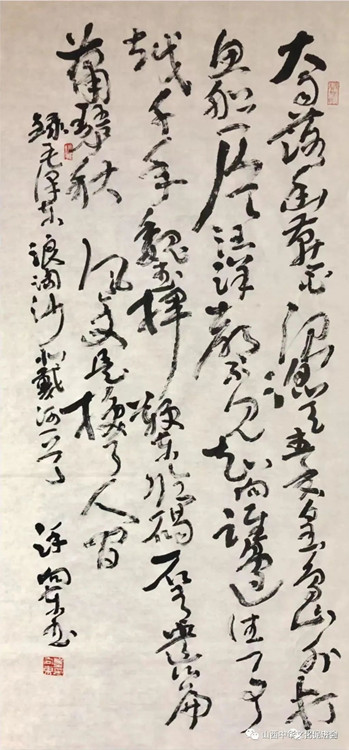 大雨落幽燕白浪滔天秦皇岛外打
鱼船一片汪洋都不见知向谁边往事
越千年魏武挥鞭东临碣石有遗篇
萧瑟秋风今又是换了人间
録毛泽东浪淘沙北戴河一首
许向东书
山西中华文化促进会